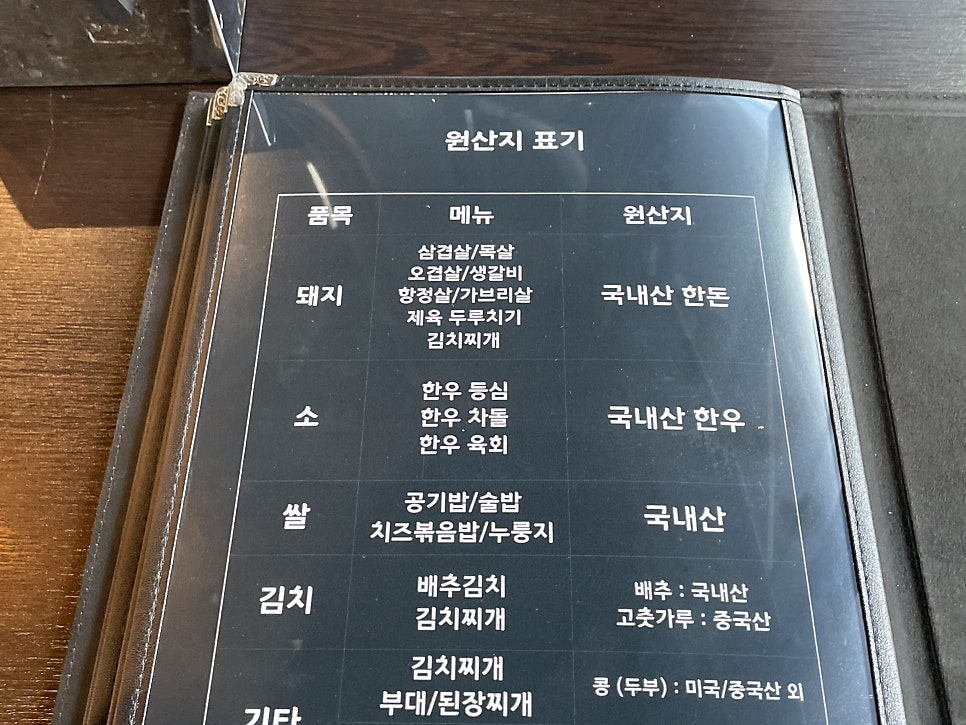 원산지 표기
품목 메뉴 원산지
삼겹살/목살
오겹살/생갈비
돼지 항정살/가브리살 국내산 한돈
제육 두루치기
김치찌개
한우 등심
소 한우 차돌 국내산 한우
한우 육회
쌀 공기밥/술밥 국내산
치즈볶음밥/누룽지
김치 배추김치 배추 : 국내산
김치찌개 고춧가루 : 중국산
김치찌개
기타 부대/된장찌개 콩 (두부) : 미국/중국산 외